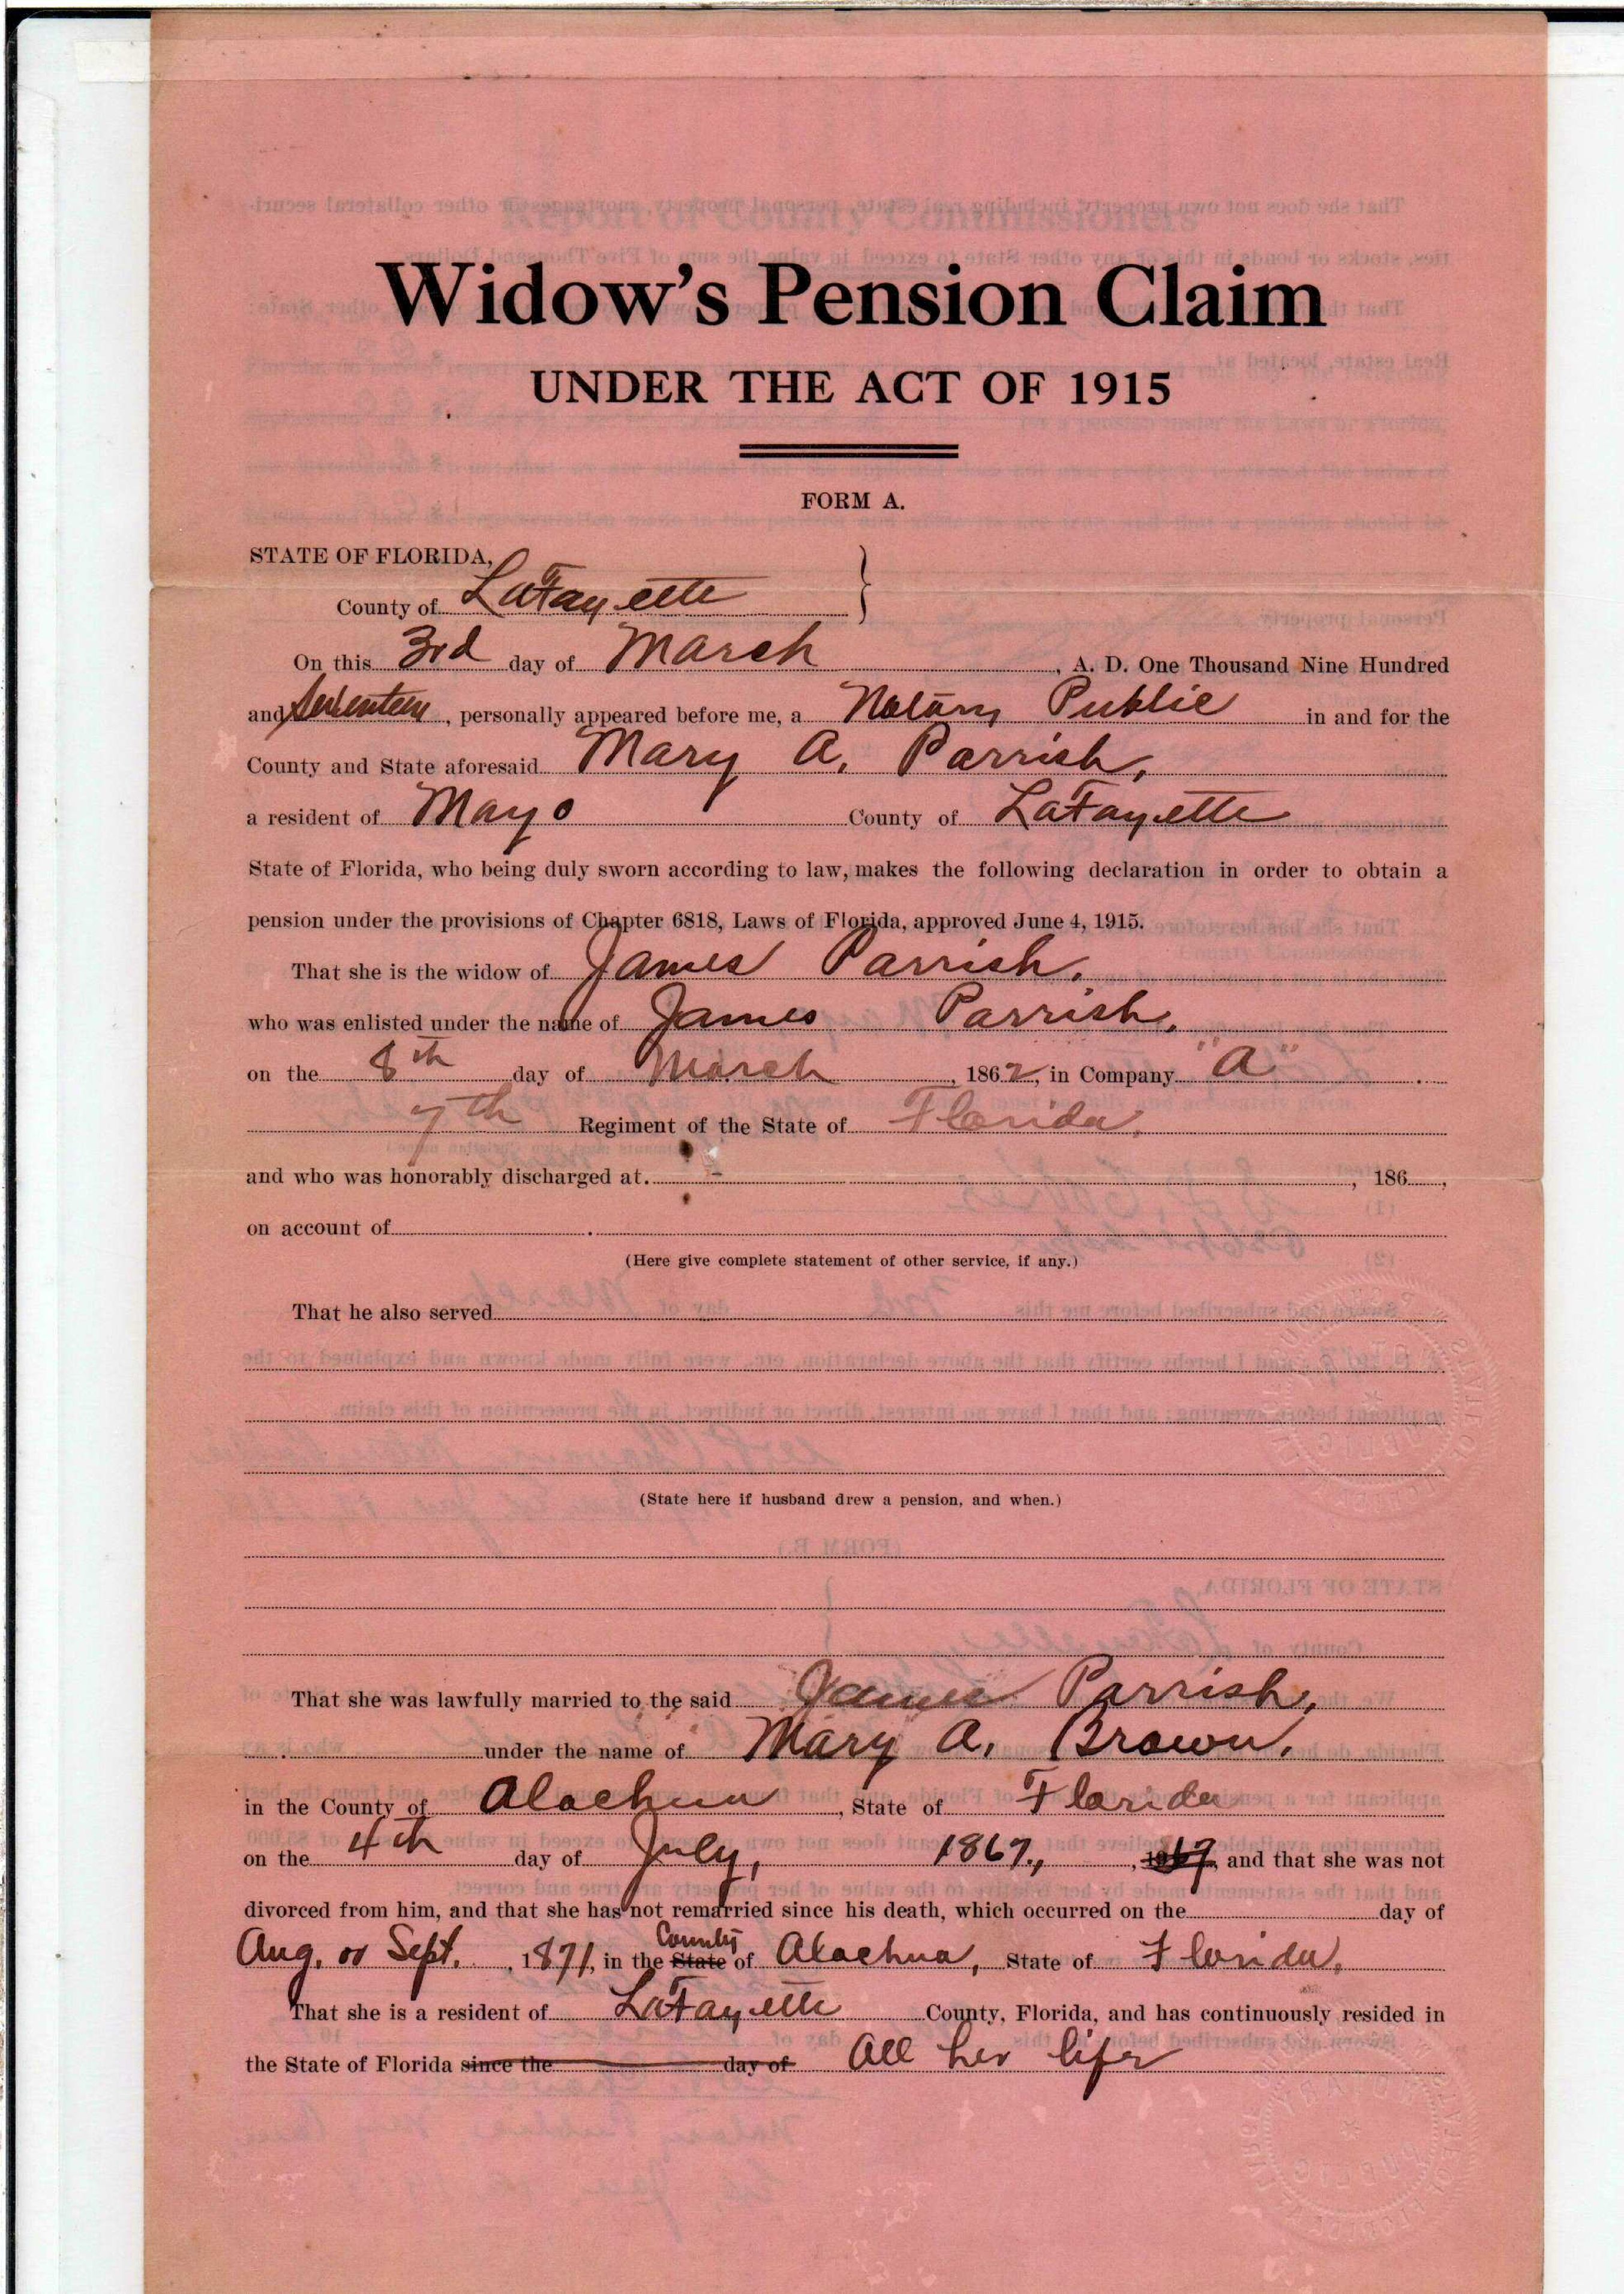 Widow's Pension Claim
UNDER THE ACT OF 1915
FORM A.
STATE OF FLORIDA,
County of LaFayette
On this 3rd day of March, A. D. One Thousand Nine Hundred
and Seventeen, personally appeared before me, a Notary Public in and for the
County and State aforesaid Mary A. Parrish,
a resident of Mayo County of LaFayette
State of Florida, who being duly sworn according to law, makes the following declaration in order to obtain a
pension under the provisions of Chapter 6818, Laws of Florida, approved June 4, 1915.
That she is the widow of James Parrish.
who was enlisted under the name of James Parrish.
on the 8th day of March, 1862, in Company "A"
7th Regiment of the State of Florida.
and who was honorably discharged at. -, 186,
on account of
(Here give complete statement of other service, if any.)
That he also served
(State here if husband drew a pension, and when.)
That she was lawfully married to the said James Parrish,
under the name of Mary A. Brown.
in the County of Alachua, State of Florida
on the 4th day of July, 1867., 1967, and that she was not
divorced from him, and that she has not remarried since his death, which occurred on the day of
Aug. or Sept., 1871, in the State County of Alachua, State of Florida.
That she is a resident of LaFayette County, Florida, and has continuously resided in
the State of Florida since the day of All her life